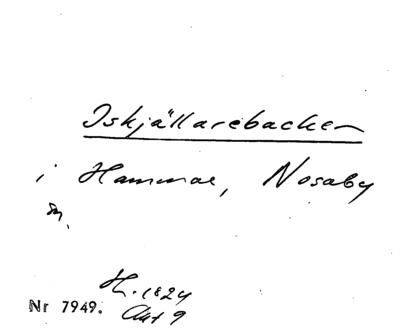 Iskjällarebacken
i Hammar, Nosaby
sn.
H. 1824
Nr 7949. Akt 9